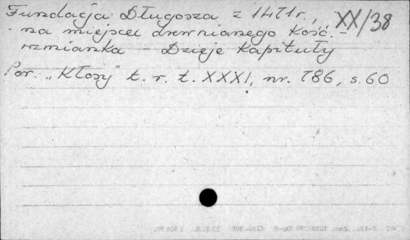 Fundacja Długosza z 1471 r., XX/38
na miejscu drewnianego kośc. –
wzmianka – Dzieje Kapituły
Por. "Kłosy" t. r. t. XXXI, nr. 786, s. 60